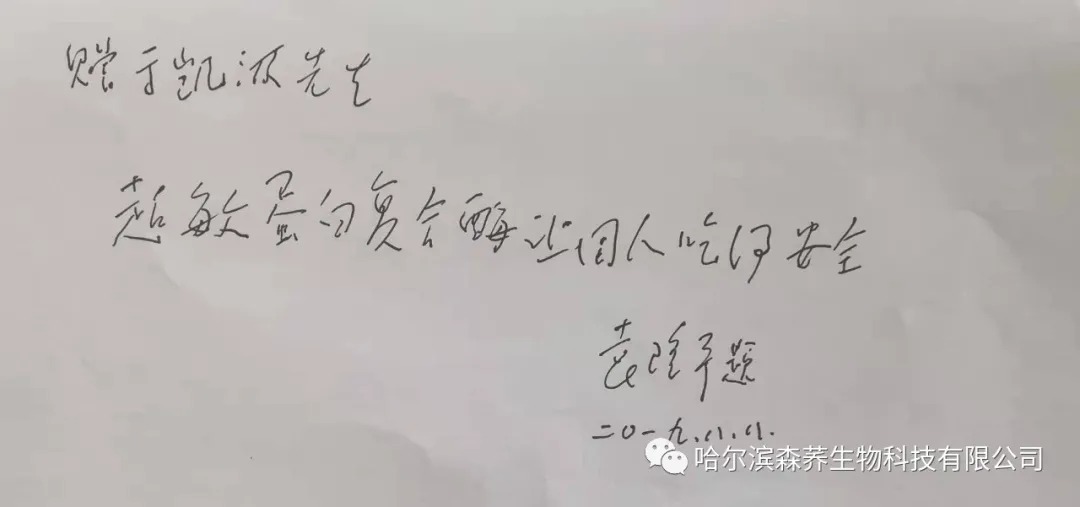 赠于凯波先生
超敏蛋白复合酶让国人吃得安全
袁隆平题
二0一九.八.八.
哈尔滨森荞生物科技有限公司